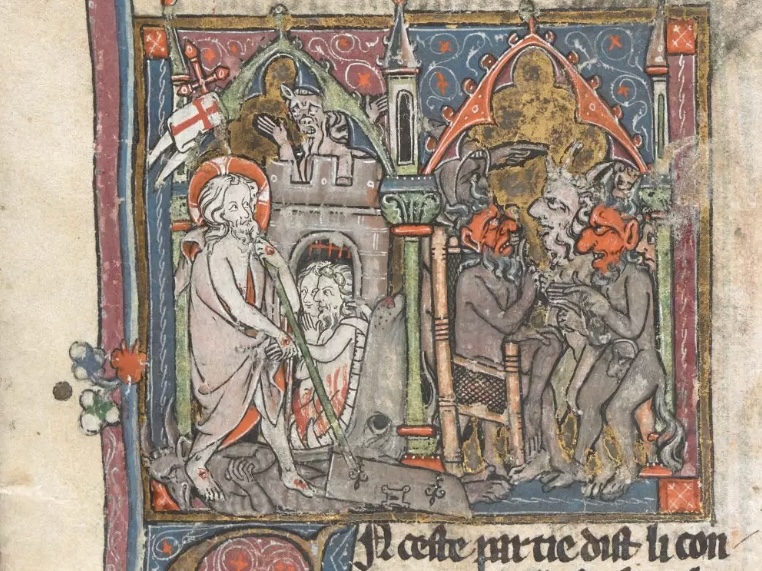 N ceste partie dist li con